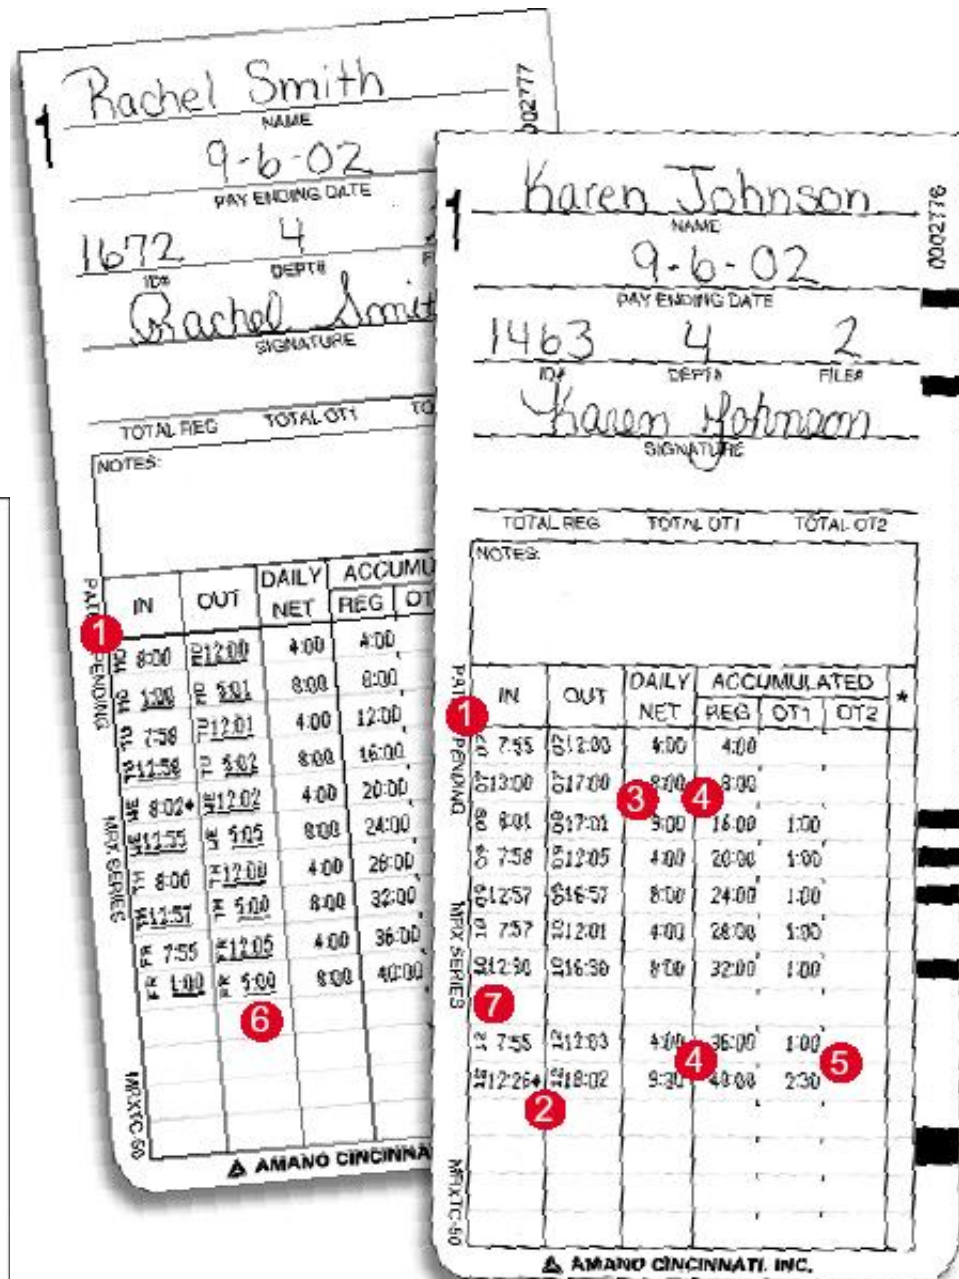 1
Rachel Smith
NAME
0002777
9-6-02
PAY ENDING DATE
1672 4
ID# DEPT#
Rachel Smit
SIGNATURE
TOTAL REG TOTAL OT1 TO
NOTES:
IN OUT DAILY NET ACCUMU
REG OT
1
MO 8:00 MO 12:00 4:00 4:00
MO 1:00 MO 5:01 8:00 8:00
TU 7:58 TU 12:01 4:00 12:00
TU 12:58 TU 5:02 8:00 16:00
WE 8:02 WE 12:02 4:00 20:00
WE 12:55 WE 5:05 8:00 24:00
TH 8:00 TH 12:00 4:00 28:00
TH 12:57 TH 5:00 8:00 32:00
FR 7:55 FR 12:05 4:00 36:00
FR 1:00 FR 5:00 8:00 40:00
6
PENDING
MRX SERIES
MRXTC-50
AMANO CINCINNA
1
Karen Johnson
NAME
0002776
9-6-02
PAY ENDING DATE
1463 4 2
ID# DEPT# FILE#
Karen Johnson
SIGNATURE
TOTAL REG TOTAL OT1 TOTAL OT2
NOTES:
IN OUT DAILY NET ACCUMULATED *
REG OT1 OT2
1
7:55 07 12:00 4:00 4:00
07 13:00 07 17:00 8:00 8:00
3 4
8:01 17:01 9:00 16:00 1:00
09 7:58 09 12:05 4:00 20:00 1:00
09 12:57 09 16:57 8:00 24:00 1:00
10 7:57 10 12:01 4:00 28:00 1:00
10 12:30 10 16:30 8:00 32:00 1:00
7
12 7:55 12 12:03 4:00 36:00 1:00
4 5
12 12:26 12 18:02 9:30 40:00 2:30
2
PENDING
MRX SERIES
MRXTC-50
AMANO CINCINNATI, INC.